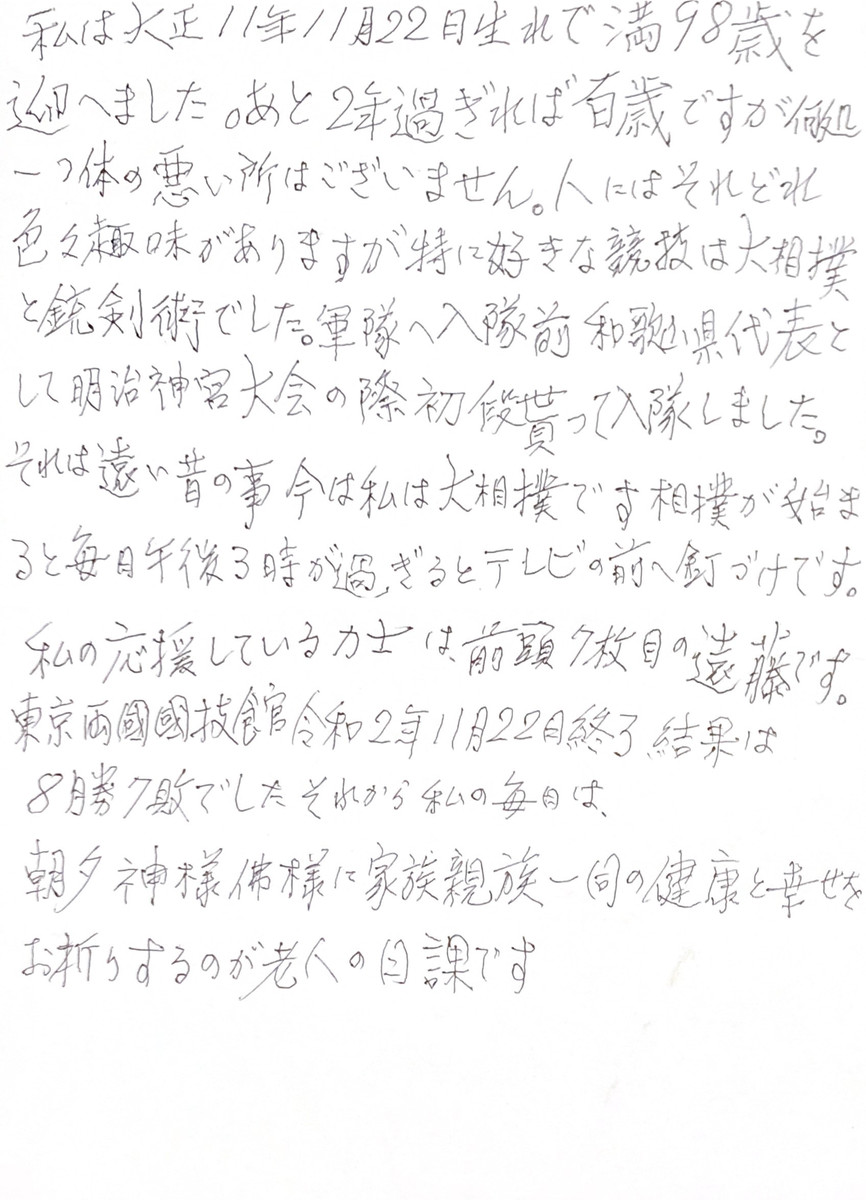 私は大正11年11月22日生れで満98歳を
迎へました。あと2年過ぎれば百歳ですが何処
一つ体の悪い所はございません。人にはそれどれ
色々趣味がありますが特に好きな競技は大相撲
と銃剣術でした。軍隊へ入隊前和歌山県代表と
して明治神宮大会の際初段貰って入隊しました。
それは遠い昔の事今は私は大相撲です相撲が始ま
ると毎日午後3時が過ぎるとテレビの前へ釘づけです。
私の応援している力士は、前頭7枚目の遠藤です。
東京両國國技館令和2年11月22日終了結果は
8勝7敗でしたそれから私の毎日は、
朝夕神様佛様に家族親族一同の健康と幸せを
お祈りするのが老人の日課です